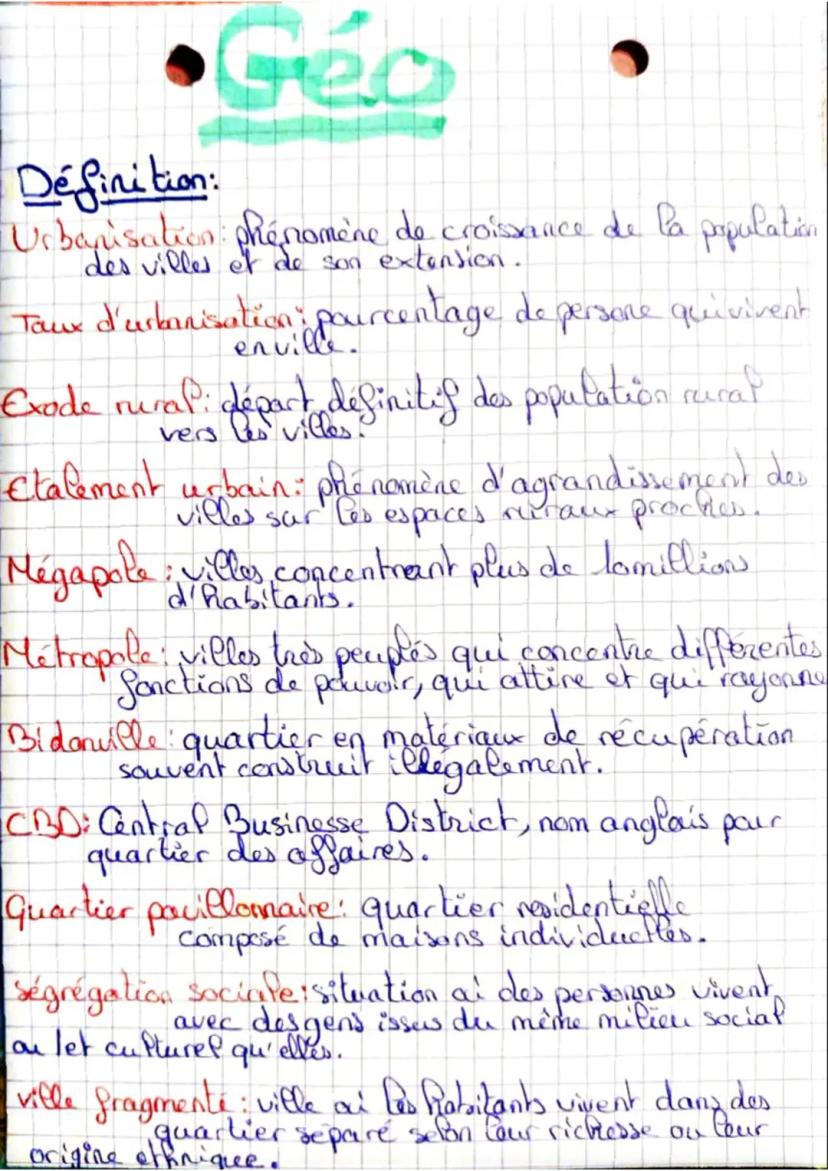 Géo
Définition:
Urbanisation: phénomène de croissance de la population
des villes et de son extension.
Taux d'urbanisation: pourcentage de persone qui vivent
en ville.
Exode rural: départ définitif des population rural
vers les villes.
Etalement urbain: phénomène d'agrandissement des
villes sur les espaces ruraux proches.
Mégapole: villes concentrant plus de 10 millions
d'habitants.
Métropole: villes très peuplés qui concentre différentes
fonctions de pouvoir, qui attire et qui rayonne
Bidonville: quartier en matériaux de récupération
souvent construit illégalement.
CBD: Central Businesse District, nom anglais pour
quartier des affaires.
Quartier pavillonnaire: quartier residentielle
composé de maisons individuelles.
ségrégation sociale: situation où des personnes vivent
avec des gens issus du même milieu social
ou let culturel qu'elles.
ville fragmenté: ville où les habitants vivent dans des
quartier séparé selon leur richesse ou leur
origine ethnique.